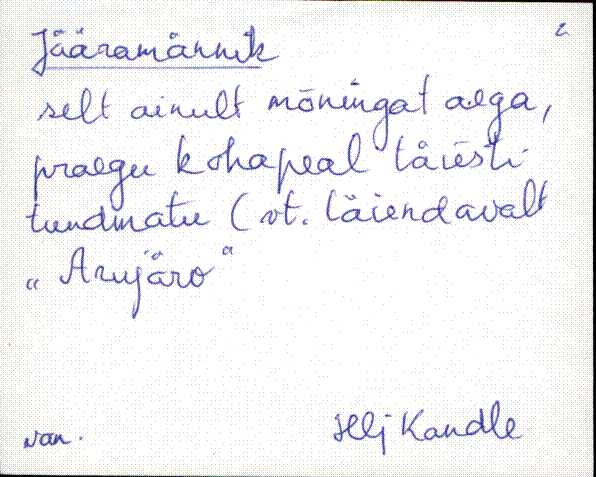 2
Jääramännik
selt ainult mõningat aega,
praegu kohapeal täiesti
tundmatu (vt. täiendavalt
„Arujäro"
van.
Kandle